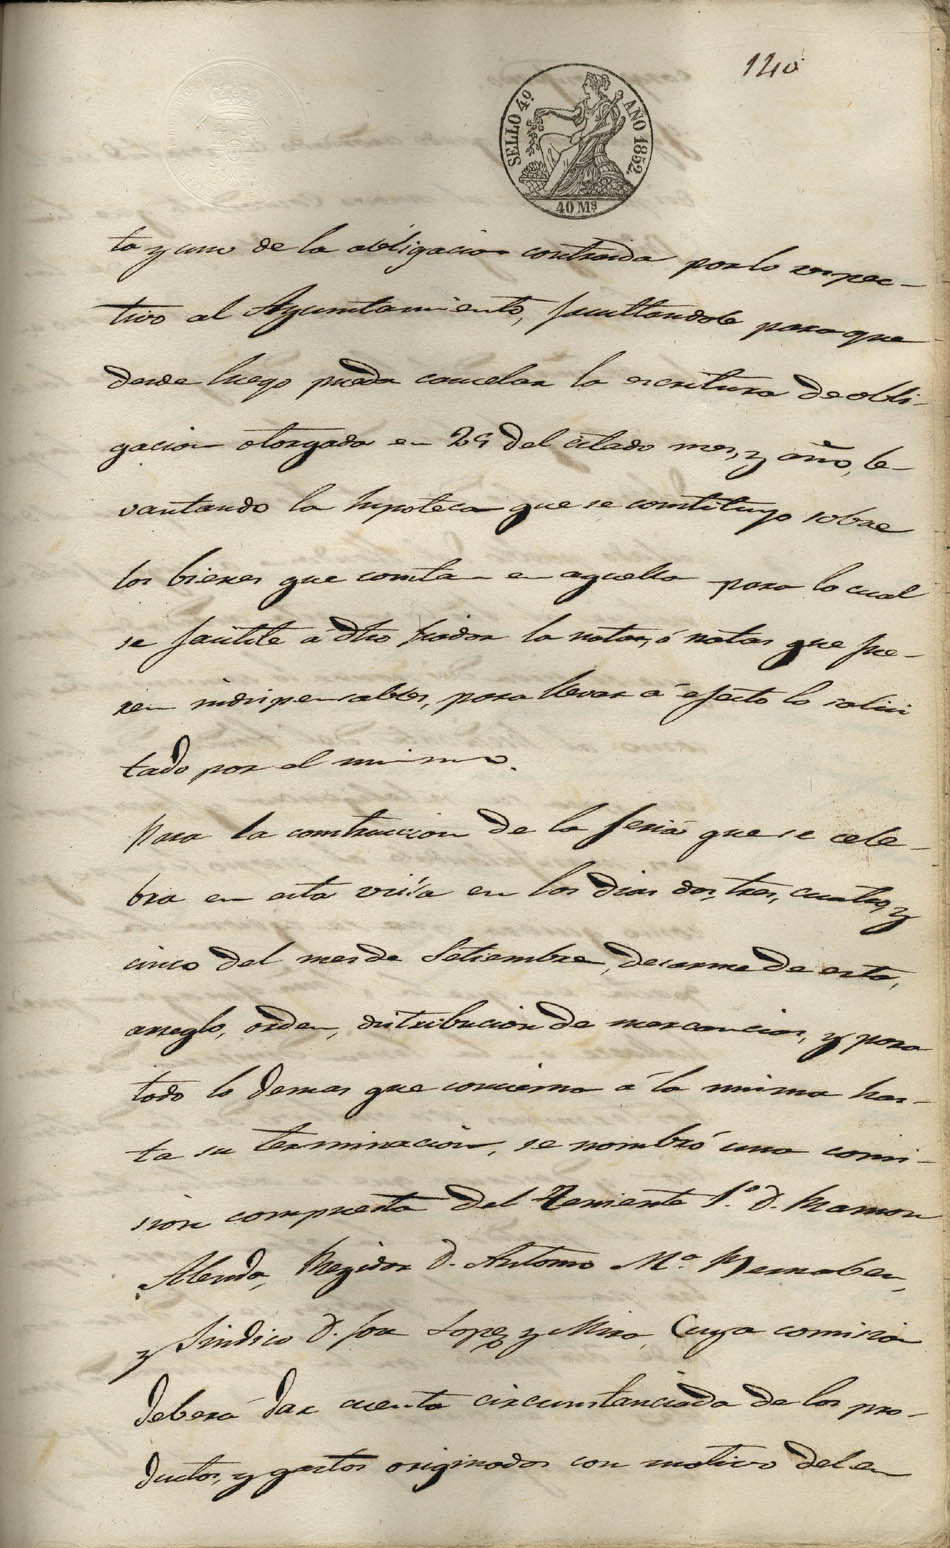 140
SELLO 4º AÑO 1852
40 Ms
ta y uno de la obligacion contraida por lo respec-
tivo al Ayuntamiento, facultandole para que
desde luego pueda cancelar la escritura de obli-
gacion otorgada en 29 del citado mes, y año, le-
vantando la hipoteca que se constituyo sobre
los bienes que constan en aquella para lo cual
se facilite á dho fiador la nota, ó notas que fue-
ren indispensables, para llevar á efecto lo solici
tado por el mismo.
Para la construccion de la feria que se cele-
bra en esta villa en los dias dos, tres, cuatro, y
cinco del mes de Setiembre, desarme de esta,
arreglo, orden, distribucion de mercancias, y para
todo lo demas que concierna á la misma has-
ta su terminacion, se nombró una comi-
sion compuesta del Teniente 1.º D. Ramon
Alenda, Regidor D. Antonio M.ª Bernabeu,
y Sindico D. José Lopez y Mira, Cuya comision
deberá dar cuenta circunstanciada de los pro-
ductos, y gastos originados con motivo del en